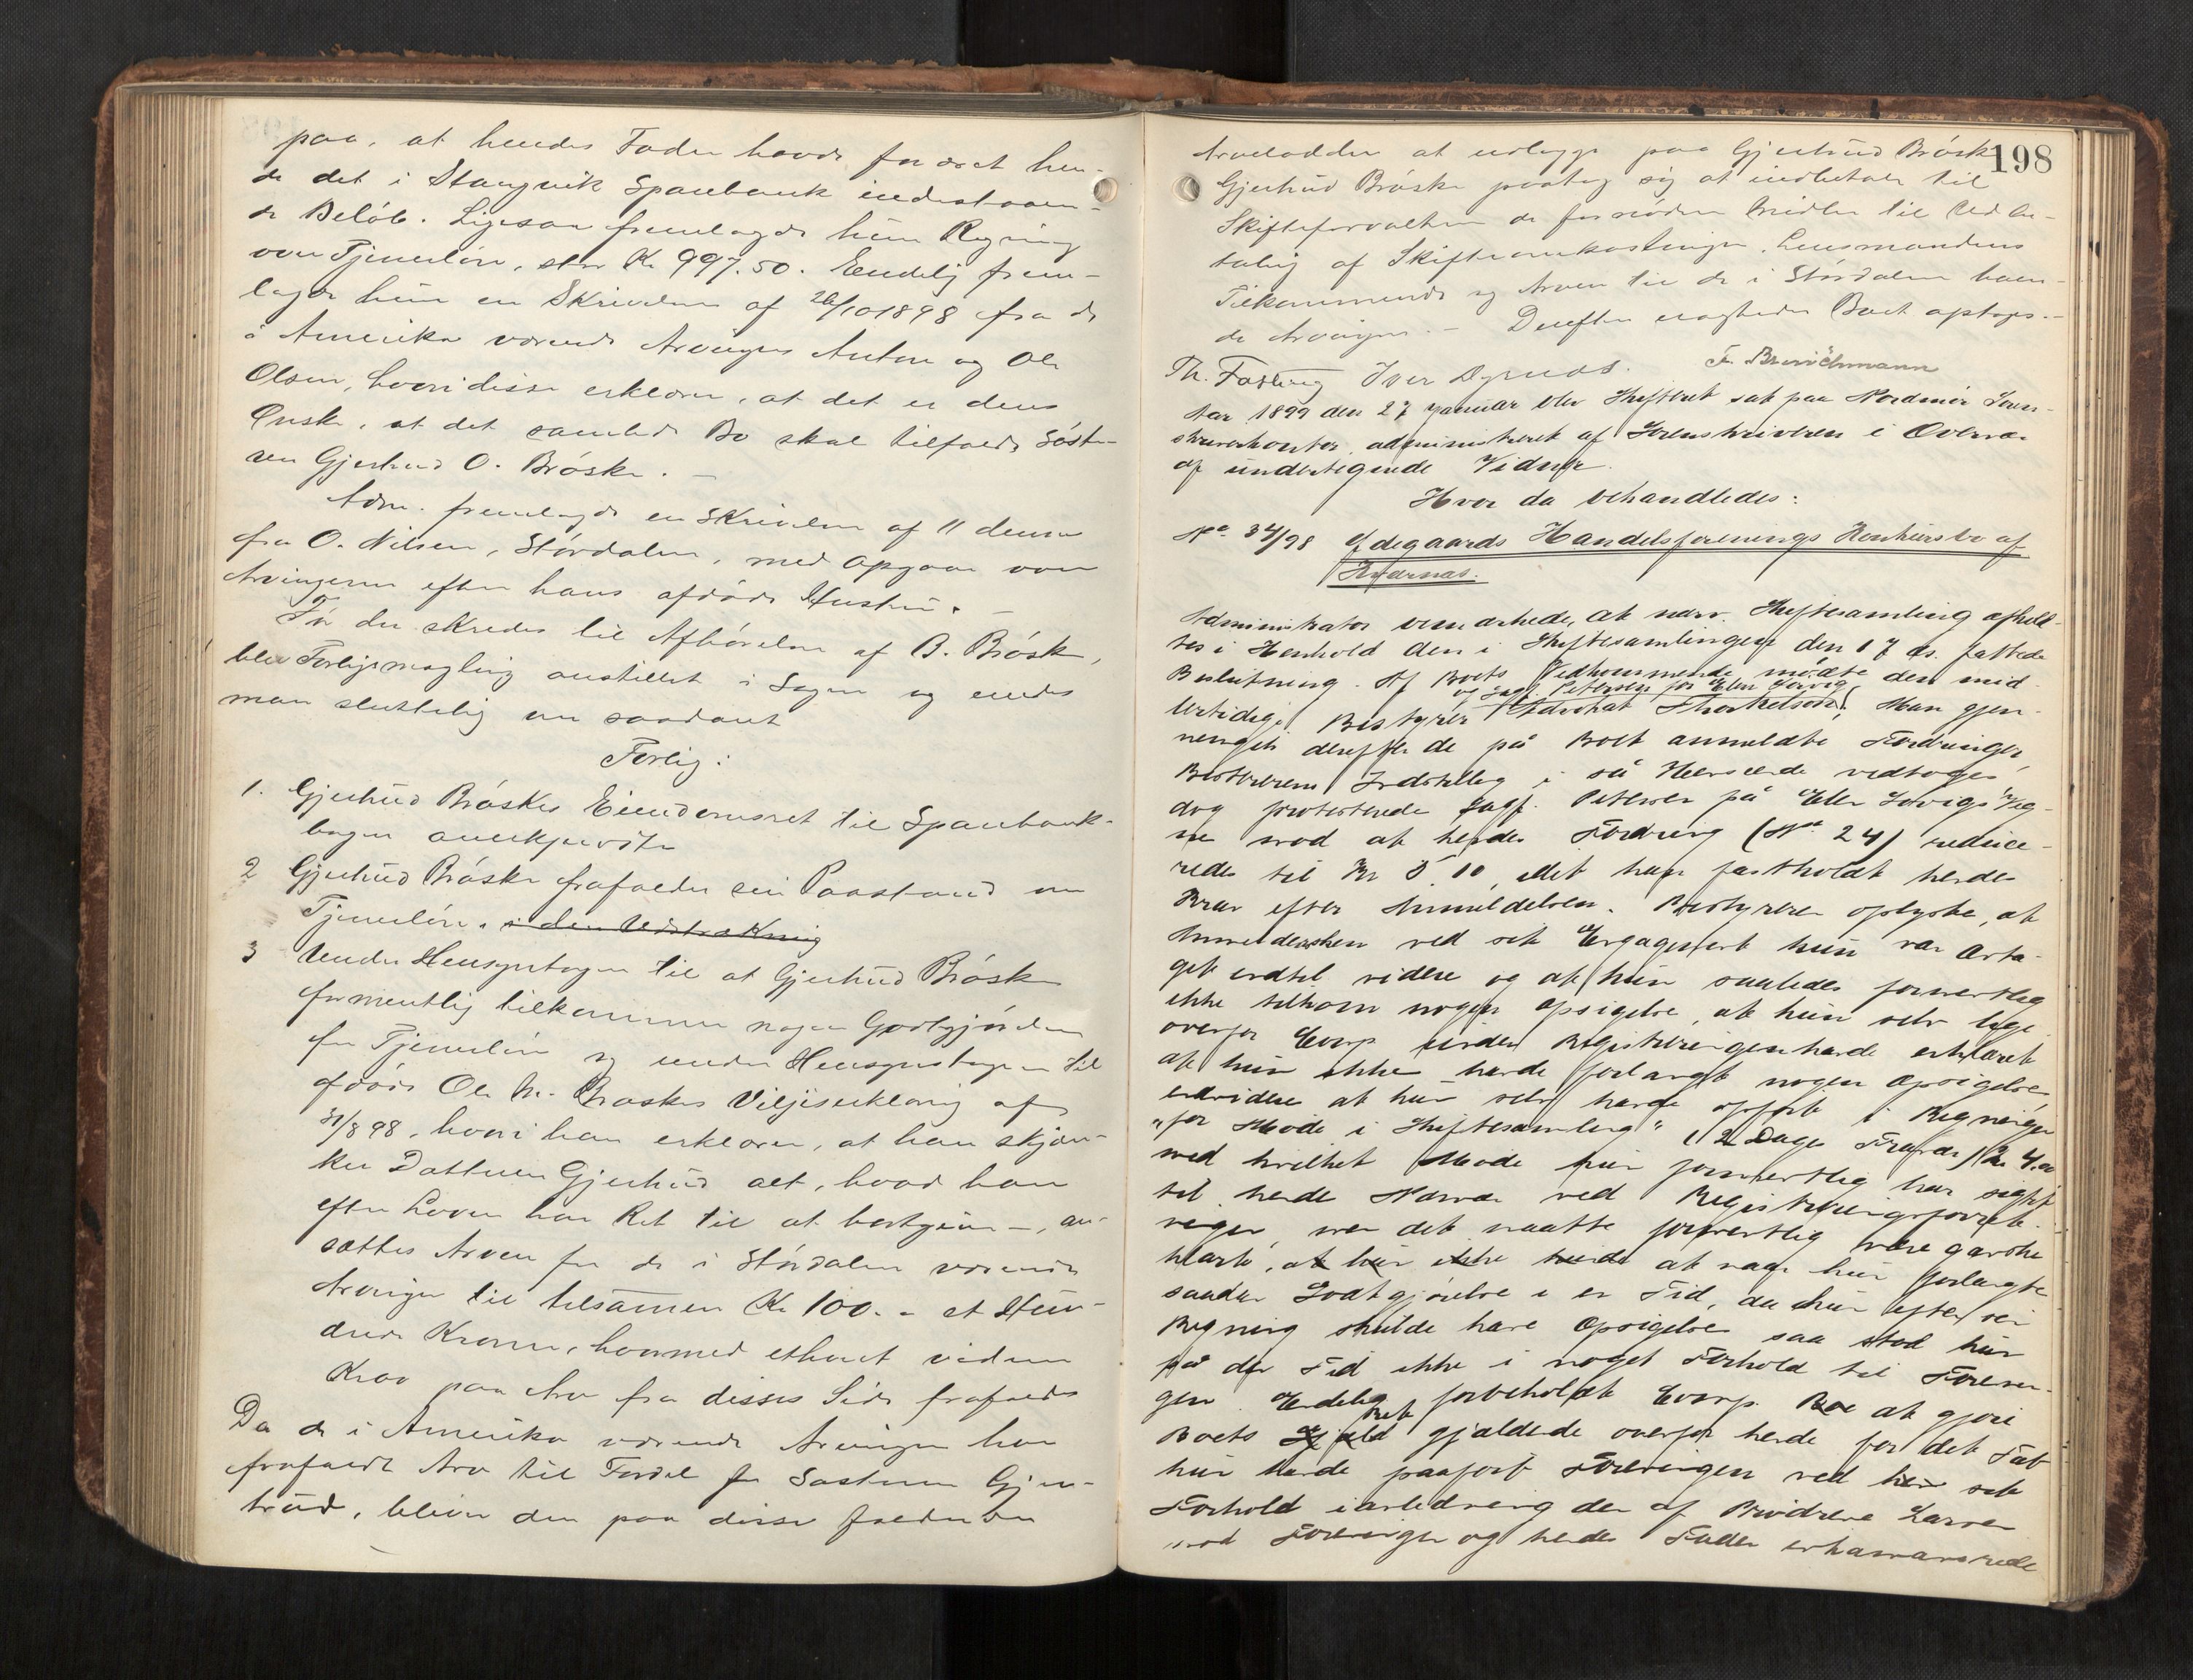 paa, at hendes Fader havde foræret hen-
de det i Stangvik Sparebank indestaaen-
de Beløb. Ligesaa fremlagde hun Regning
over Tjenerløn, stor Kr 997.50. Endelig frem-
lagde hun en Skrivelse af 26/10 1898 fra de
i Amerika værende Arvinger Anton og Ole
Olsen, hvori disse erklærer, at det er deres
Ønske, at det samlede Bo skal tilfalde Søste-
ren Gjertrud O. Brøske. –
Adm. fremlagde en Skrivelse af 11 dennes
fra O. Nilsen, Størdalen, med Opgave over
Arvingerne efter hans afdøde Hustru. –
Før der skredes til Afhørelse af B. Brøske,
blev Forligsmægling anstillet i Sagen og enedes
man sluttelig om saadant
Forlig:
1. Gjertrud Brøskes Eiendomsret til Sparebank-
bogen anerkjendtes
2 Gjertrud Brøske frafalder sin Paastand om
Tjenerløn. i den Udstrækning
3 Under Hensyntagen til at Gjertrud Brøske
formentlig tilkommer nogen Godtgjørelse
for Tjenerløn og under Hensyntagen til
afdøde Ole M. Brøskes Viljeserklæring af
31/8 98, hvori han erklærer, at han skjæn-
ker Datteren Gjertrud alt, hvad han
efter Loven har Ret til at bortgive –, an-
sættes Arven for de i Størdalen værende
Arvinger til tilsammen Kr 100. – et Hun-
drede Kroner, hvormed ethvert videre
Krav paa Arv fra disses Side frafaldes
Da de i Amerika værende Arvinger har
frafaldt Arv til Fordel for Søsteren Gjer-
trud, bliver den paa disse faldende
198
Arvelodder at udlægge paa Gjertrud Brøske
Gjertrud Brøske paatog sig at indbetale til
Skifteforvalteren de fornødne Midler til Udbe-
taling af Skifteomkostninger, Lensmandens
Tilkommende og Arven til de i Størdalen boen-
de Arvinger. – Derefter eragtedes Boet optages. –
Th. Fasting Iver F. Brinchmann
Aar 1899 den 27 Januar blev Skifteret sat paa Nordmør Soren-
skriverkontor, administreret af Sorenskriveren i Overvær
af undertegnede Vidner.
Hvor da behandledes:
No. 34/98 Ødegaards Handelsforenings Konkursbo af
Administrator bemærkede, at nærv. Skiftesamling afhold-
tes i Henhold den i Skiftesamlingen den 17 ds. fattede
Beslutning. Af Boets Vedkommende mødte den mid-
og Sagf. Petersen for Ellen
lertidige Bestyrer Advokat Thorkelson. Man gjen-
nemgik derefter de på Boet anmeldte Fordringer,
Bestyrerens Indstilling i så Henseende vedtoges,
dog protesterede Sagf. Petersen på Ellen Veg-
ne mod at hendes Fordring (No 24) reduce-
redes til Kr 5.10, idet han fastholdt hendes
Krav efter Anmeldelsen. Bestyreren oplyste, at
Anmelderinden ved sit Engagement kun var anta-
get indtil videre og at hun saaledes formentlig
ikke tilkom nogen Opsigelse, at hun selv lige-
overfor Comp. under Registreringen havde erklæret
at hun ikke havde forlangt nogen Opsigelse
endvidere at hun selv havde opført i Regningen
"for Møde i Skiftesamling" (2 Dages Fravær) Kr 4.00
med hvilket Møde hun formentlig har sigtet
til hendes Nærvær ved Registreringsforret-
ningen, men det maatte formentlig være ganske
klart, at hun ikke havde at naar hun forlangte
saadan Godtgjørelse i en Tid, da hun efter sin
Regning skulde have Opsigelse saa stod hun
på den Tid ikke i noget Forhold til Forenin-
gen. Endelig forbeholdt Comp. Boe at gjøre
Boets Ret gjældende overfor hende for det Tab
hun havde paaført Foreningen ved sit
Forhold i anledning den af Brødrene Larsen
mod Foreningen og hendes Fader